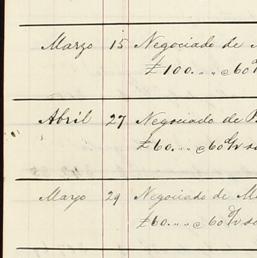 Marzo 15 Negociado de
£100.... @ 60 d/
Abril 27 Negociado de
£60.... @ 60 d/v
Marzo 29 Negociado de
£60.... @ 60 d/v